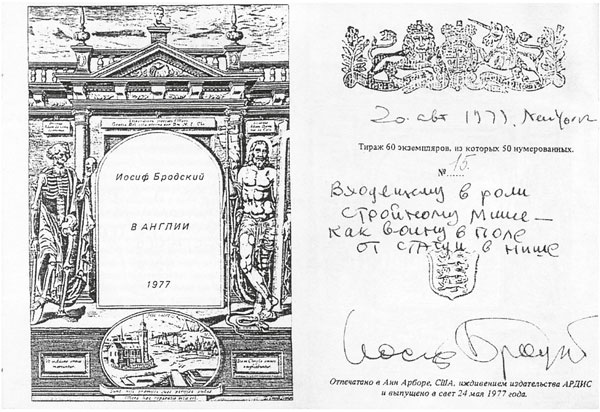 Иосиф Бродский
В АНГЛИИ
1977
20 авг 1977, New York
Тираж 60 экземпляров, из которых 50 нумерованных.
№ 15.
Входящему в роли
стройному Мише —
как воину в поле
от статуи в нише
Иосиф Бродский
Отпечатано в Анн Арборе, США, иждивением издательства АРДИС
и выпущено в свет 24 мая 1977 года.